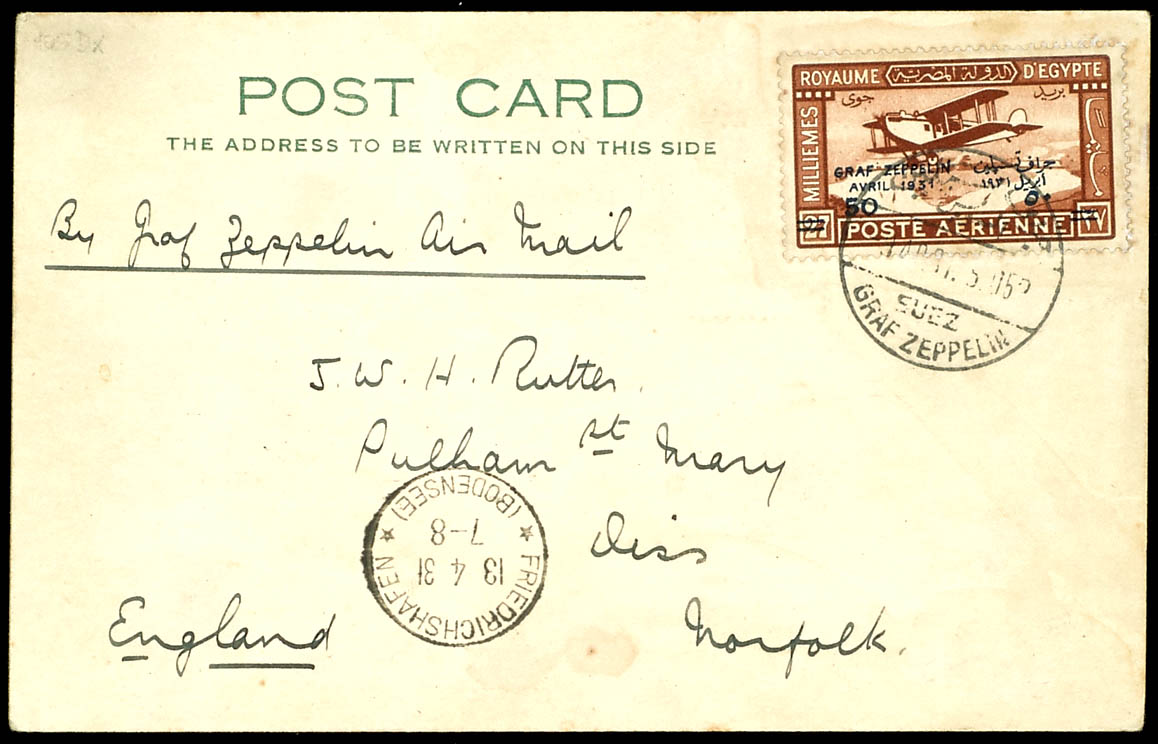 POST CARD
THE ADDRESS TO BE WRITTEN ON THIS SIDE
ROYAUME الدولة المصرية D'EGYPTE
جوى بريد
MILLIEMES
GRAF ZEPPELIN جراف تسبلين
AVRIL 1931 أبريل ١٩٣١
50 ٥٠
27 POSTE AÉRIENNE ٢٧
SUEZ
GRAF ZEPPELIN
By Graf Zeppelin Air Mail
J. W. H. Rutter.
Pulham St Mary
Diss
Norfolk.
England
FRIEDRICHSHAFEN
(BODENSEE)
13 4 31
7-8